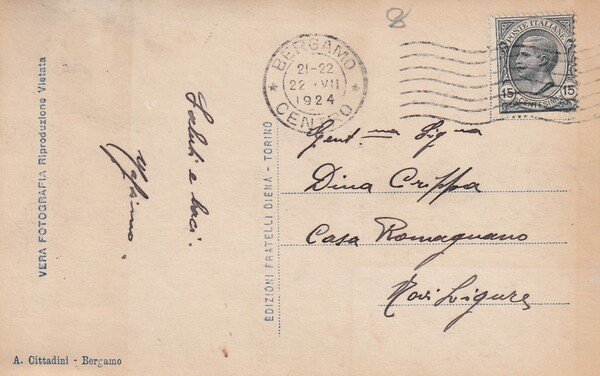 8
POSTE ITALIANE
15 15
CENTESIMI
BERGAMO
21-22
22·VII
1924
CENTRO
VERA FOTOGRAFIA Riproduzione Vietata
Saluti e baci.
EDIZIONI FRATELLI DIENA - TORINO
Gent.ma Sig.na
Dina Crippa
Casa Romagnano
Novi Ligure
A. Cittadini - Bergamo